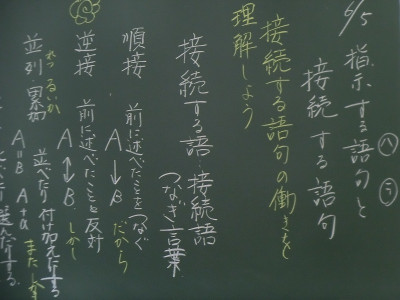 6/5
指示する語句と
接続する語句
接続する語句の働きを
理解しよう
接続する語・接続語
つなぎ言葉
順接 前に述べたことをつなぐ
A→B だから
逆接 前に述べたことと反対
A↔B しかし
並列 累加 並べたり付け加えたりする
るいか
A=B A+α また しかも